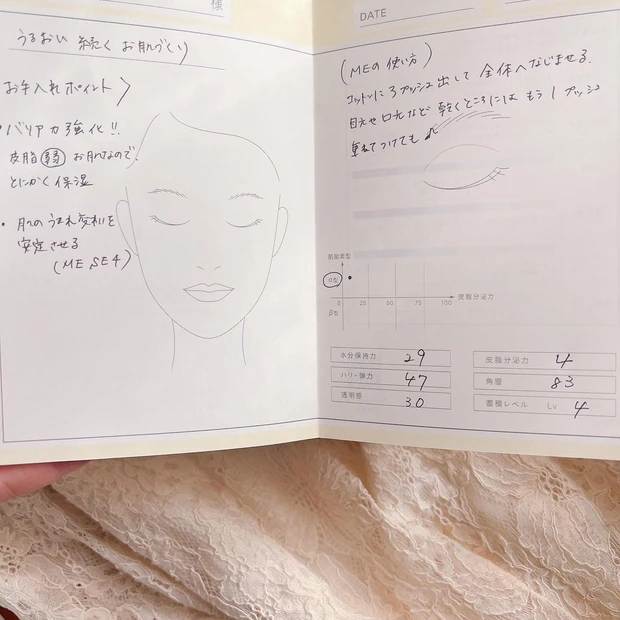 様
うるおい 続く お肌づくり
お手入れポイント〉
・バリア力強化!!
皮脂弱 お肌なので、
とにかく保湿
・肌のうまれ変わりを
安定させる
(ME, SE4)
DATE
(MEの使い方)
コットンに3プッシュ出して 全体へなじませる.
目元や口元など 乾くところには もう1プッシュ
重ねてつけても
肌脂素型
α型
0 25 50 75 100 皮脂分泌力
β型
水分保持力 29
ハリ・弾力 47
透明感 30
皮脂分泌力 4
角層 83
蓄積レベル Lv 4